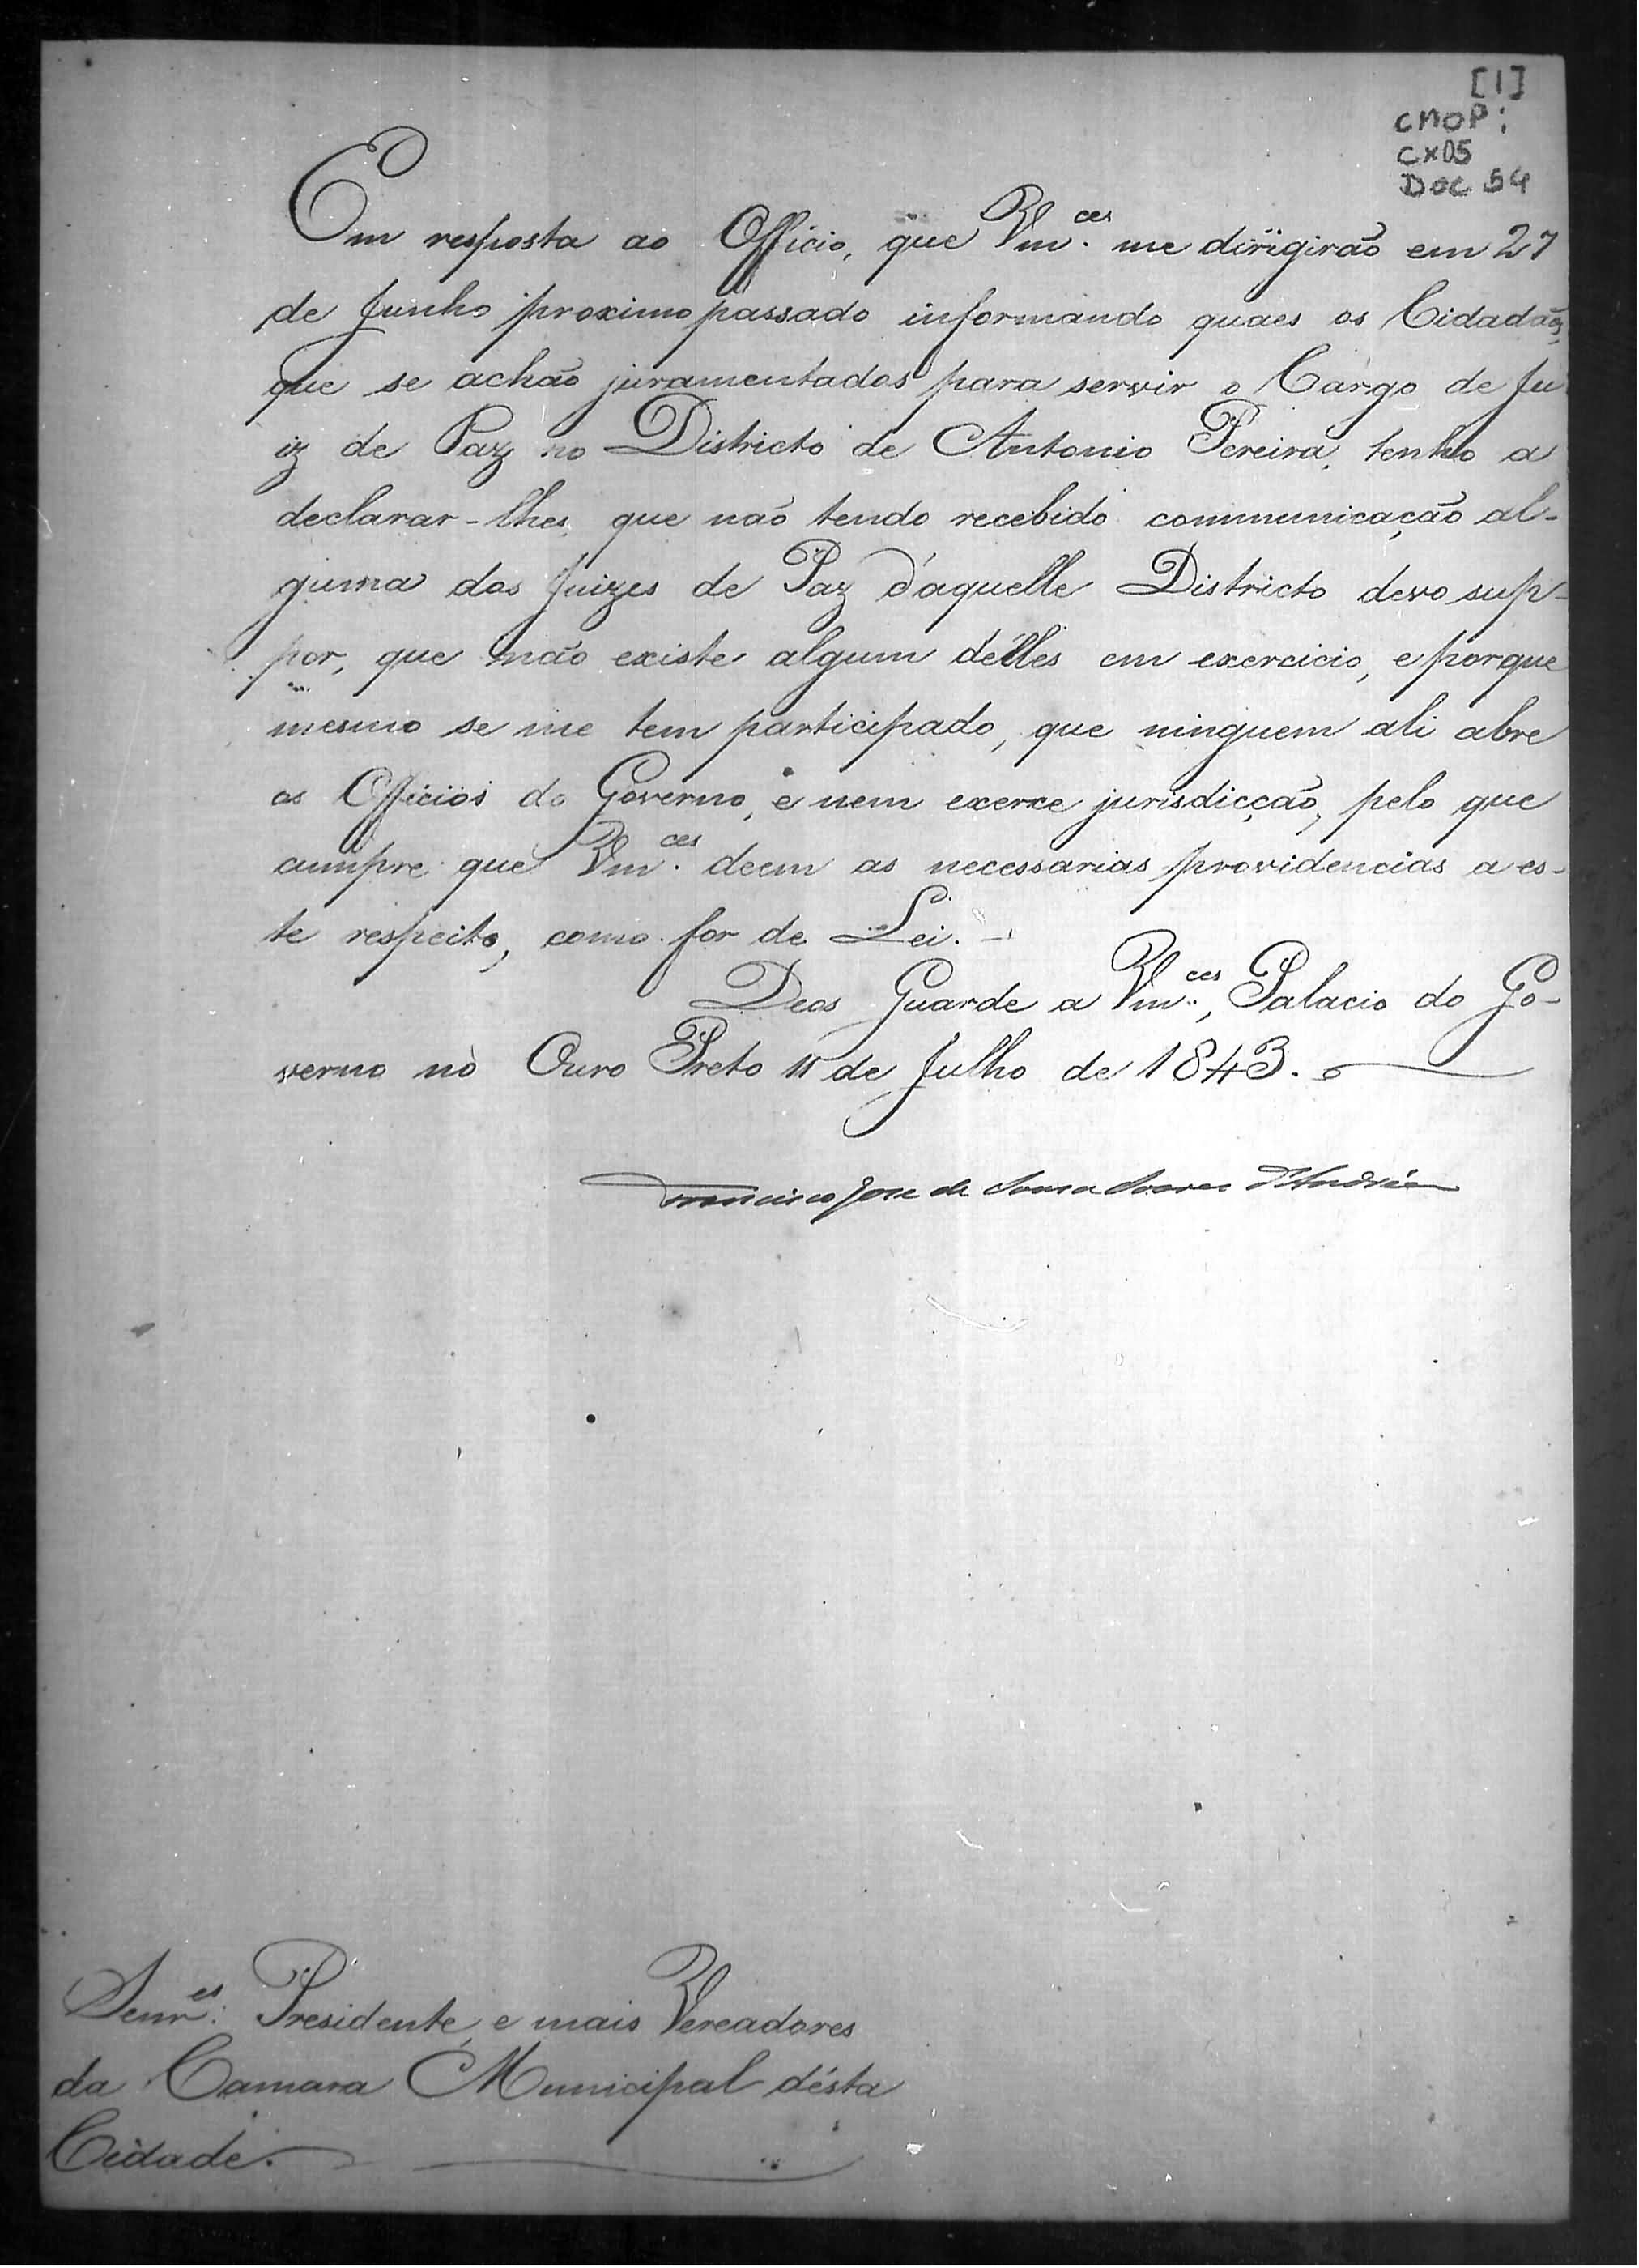 [1]
CMOP:
CX05
DOC 54
Em resposta ao Officio, que Vm.ces me dirigirão em 27
de Junho proximo passado informando quaes os Cidadãos,
que se achão juramentados para servir o Cargo de Ju
iz de Paz no Districto de Antonio Pereira, tenho a
declarar-lhes, que não tendo recebido communicação al-
guma dos Juizes de Paz d'aquelle Districto devo sup-
por, que não existe algum d'elles em exercicio, e porque
mesmo se me tem participado, que ninguem ali abre
os Officios do Governo, e nem exerce jurisdicção, pelo que
cumpre que Vm.ces deem as necessarias providencias a es-
te respeito, como for de Lei. -
Deos Guarde a Vm.ces, Palacio do Go-
verno no Ouro Preto 11 de Julho de 1843.
Francisco Jose de Souza Soares d'Andréa
Senr.es Presidente, e mais Vereadores
da Camara Municipal d'ésta
Cidade.